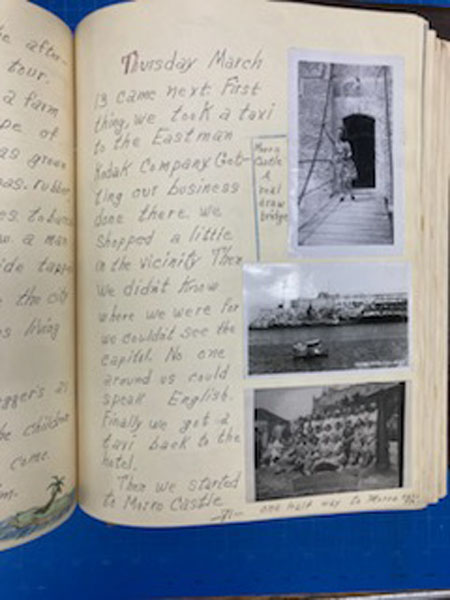 he after-
tour.
a farm
pe of
as green
nas. rubber
es. tobacco
w. a man
ide tapped
the city
os living
gger's at
he children
come
Thursday March
13 came next. First
thing, we took a taxi
to the Eastman
Kodak Company Get-
ting our business
done there. we
shopped a little
in the vicinity Then
we didn't know
where we were for
we couldn't see the
capitol. No one
around us could
speak English.
Finally we got a
taxi back to the
hotel.
Then we started
to Morro Castle
Morro
Castle
A
real
draw
bridge
-71-
one half way to Morro